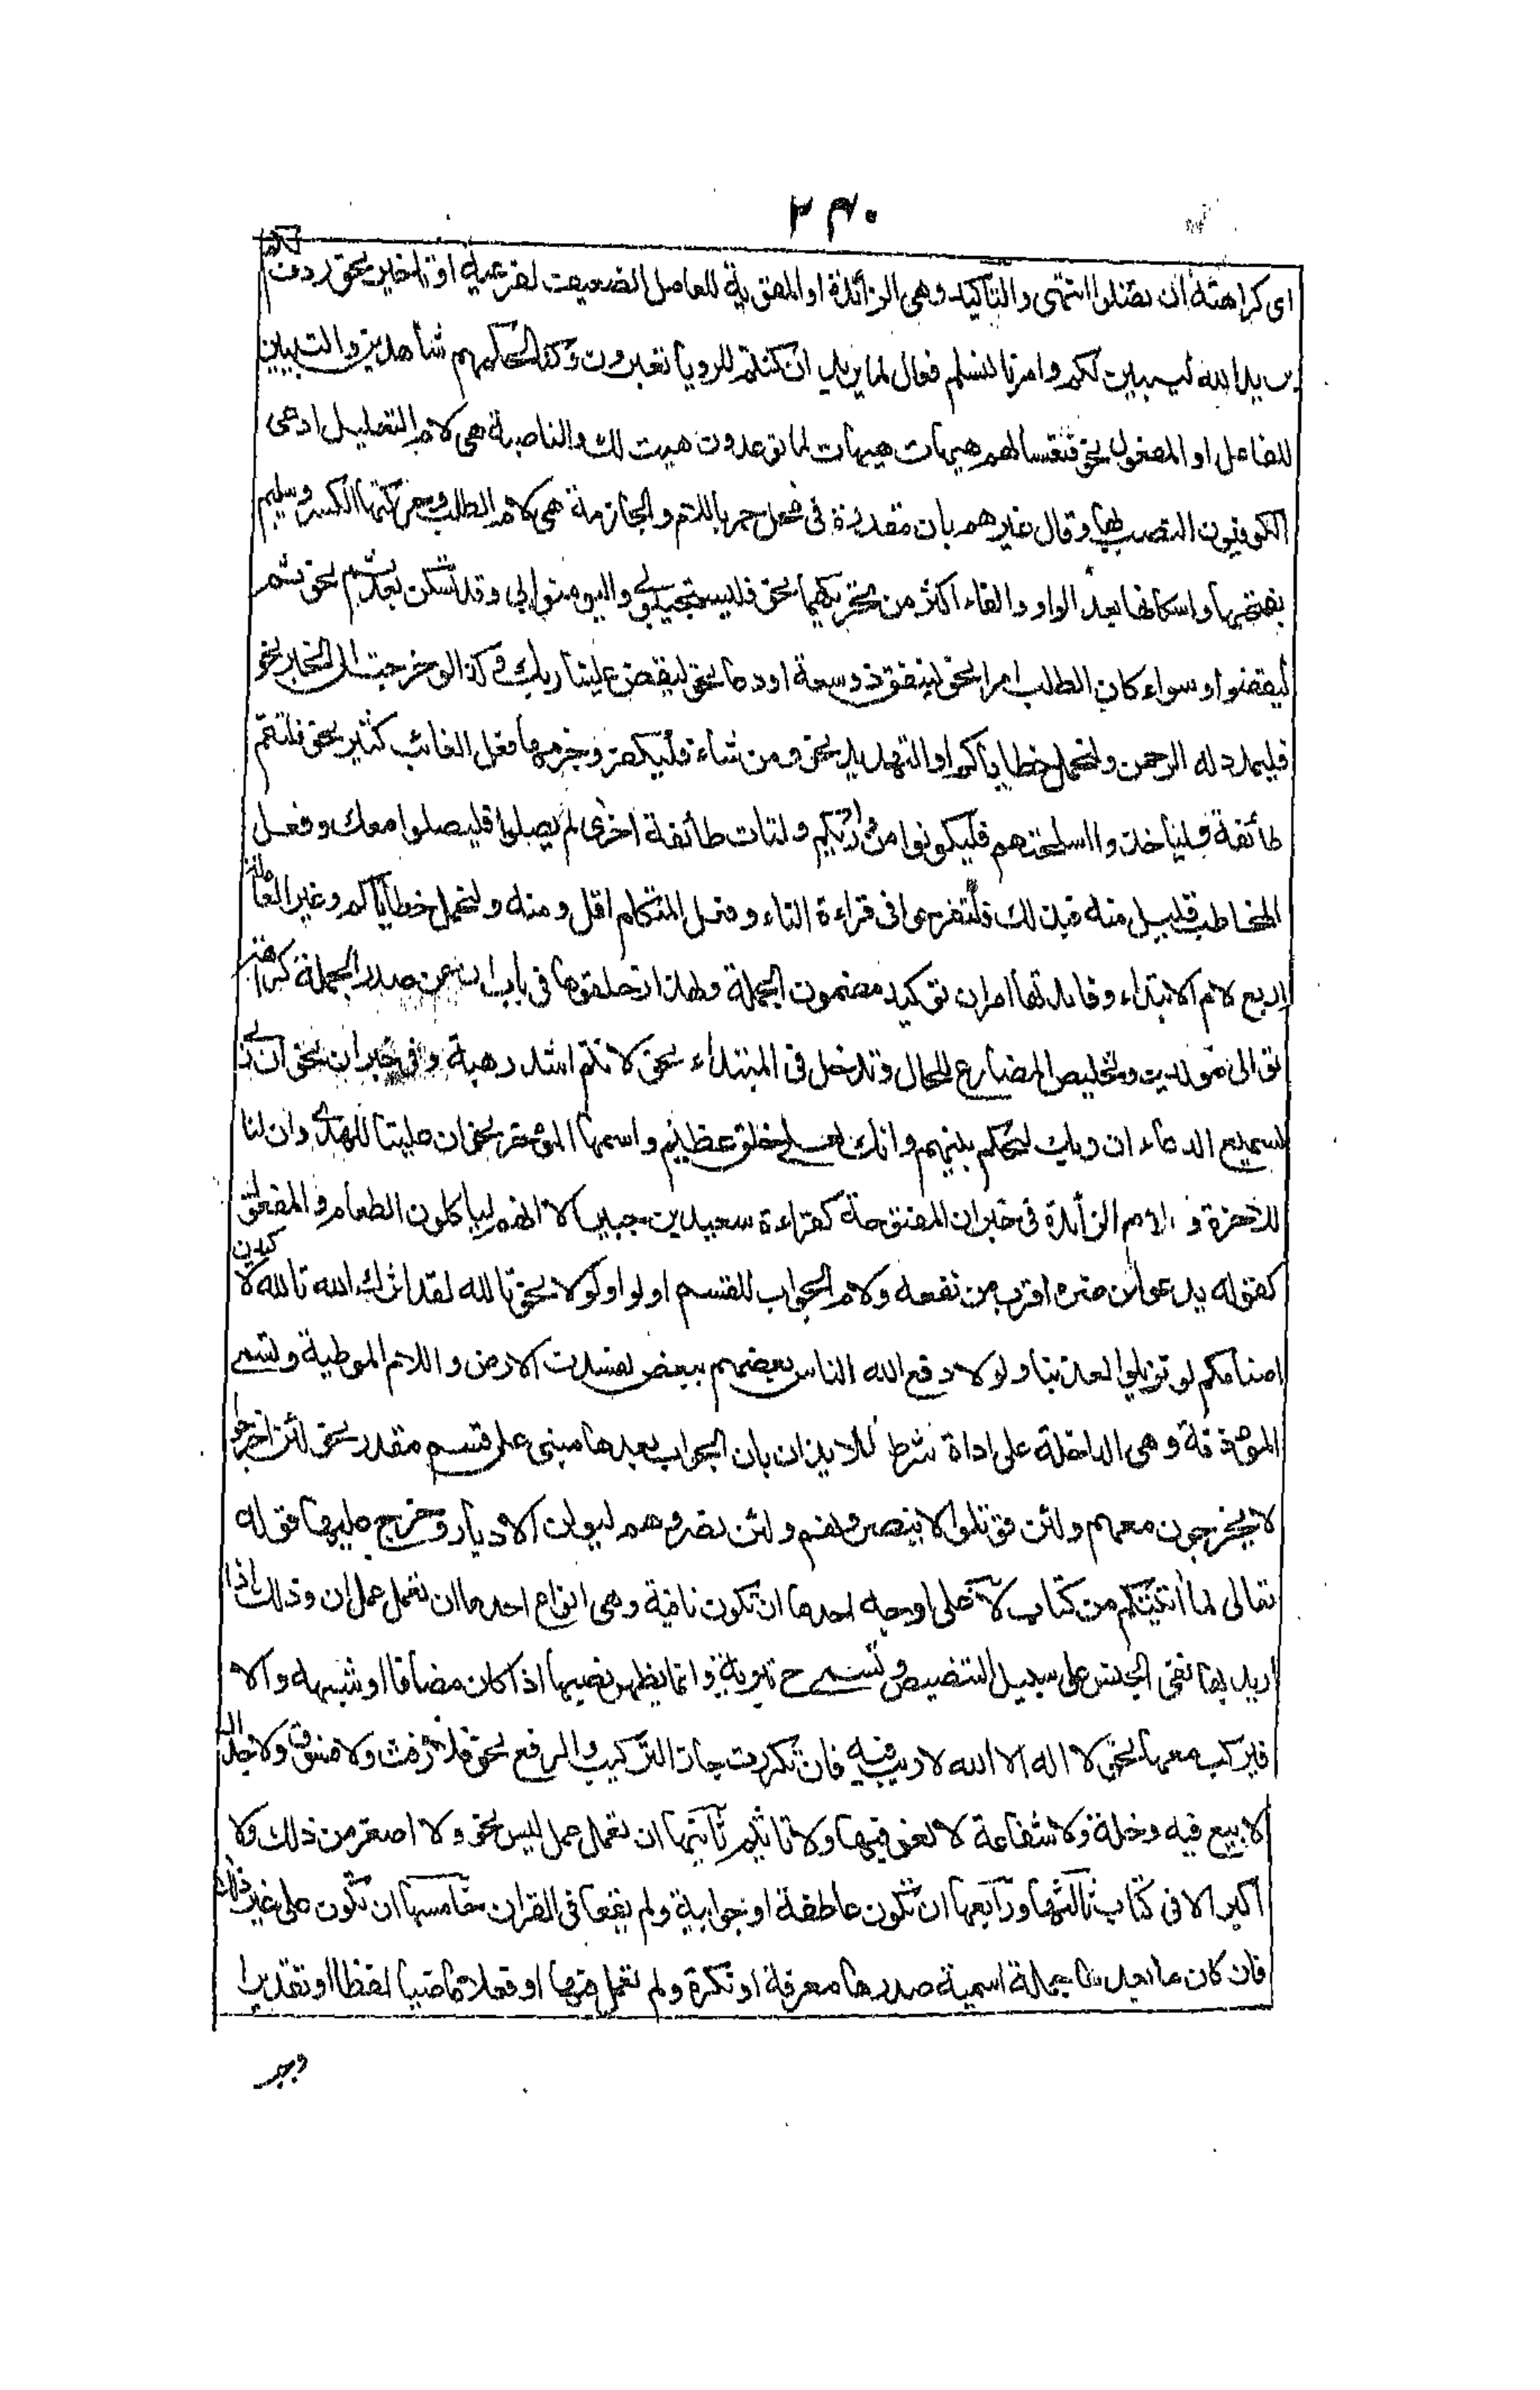 ٢٤٠
اى كراهة ان تضلوا انتهى والتاكيد وهى الزائدة او المقوية للعامل الضعيف لفرعية او تاخير نحو ردف لكم
يريد الله ليبين لكم وامرنا لنسلم فعال لما يريد ان كنتم للرويا تعبرون وكنا لحكمهم شاهدين والتبيين
للفاعل او المفعول نحو فتعسا لهم هيهات هيهات لما توعدون هيت لك والناصبة هى لام التعليل ادعى
الكوفيون النصب بها وقال غيرهم بان مقدرة فى محل جر باللام والجازمة هى لام الطلب وحركتها الكسر وسليم
بفتحها واسكانها بعد الواو والفاء اكثر من تحريكها نحو فليستجيبوا لى وليومنوا بى وقد تسكن بعد ثم نحو ثم
ليقضوا وسواء كان الطلب امرا نحو لينفق ذو سعة او دعا نحو ليقض علينا ربك وكذا لو خرجت الى الخبر نحو
فليمدد له الرحمن ولنحمل خطاياكم او التهديد نحو ومن شاء فليكفر وجزمها فعل الغائب كثير نحو فلتقم
طائفة وليأخذوا اسلحتهم فليكونوا من ورائكم ولتات طائفة اخرى لم يصلوا فليصلوا معك وفعل
المخاطب قليل منه فبذلك فلتفرحوا فى قراءة التاء وفعل المتكلم اقل ومنه ولنحمل خطاياكم وغير العاملة
اربع لام الابتداء وفائدتها امران توكيد مضمون الجملة ولهذا زحلقوها فى باب ان عن صدر الجملة كراهة
توالى موكدين وتخليص المضارع للحال وتدخل فى المبتداء نحو لانتم اشد رهبة وفى خبر ان نحو ان ربى
لسميع الدعاء ان ربك ليحكم بينهم وانك لعلى خلق عظيم واسمها الموخر نحو ان علينا للهدى وان لنا
للاخرة و اللام الزائدة فى خبر ان المفتوحة كقراءة سعيد بن جبير الا انهم ليأكلون الطعام والمفعول
كقوله يدعو لمن ضره اقرب من نفعه ولام الجواب للقسم او لو او لولا نحو تالله لقد اثرك الله تالله لاكيدن
اصنامكم لو تزيلوا لعذبنا ولولا دفع الله الناس بعضهم ببعض لفسدت الارض واللام الموطية وتسمى
الموذنة وهى الداخلة على اداة شرط للايذان بان الجواب بعدها مبنى على قسم مقدر نحو لئن اخرجوا
لا يخرجون معهم ولئن قوتلوا لا ينصرونهم ولئن نصروهم ليولن الادبار وخرج عليها قوله
تعالى لما آتيتكم من كتاب لا على اوجه احدها ان تكون نافية وهى انواع احدها ان تعمل عمل ان وذلك اذا
اريد بها نفى الجنس على سبيل التنصيص وتسمى ح تبرية وانما يظهر نصبها اذا كان مضافا او شبهه والا
فيركب معها نحو لا اله الا الله لا ريب فيه فان تكررت جاز التركيب والرفع نحو فلا رفث ولا فسوق ولا جدال
لا بيع فيه ولا خلة ولا شفاعة لا لغو فيها ولا تاثيم ثانيها ان تعمل عمل ليس نحو ولا اصغر من ذلك ولا
اكبر الا فى كتاب ثالثها ورابعها ان تكون عاطفة او جوابية ولم يقعا فى القران خامسها ان تكون على غير ذلك
فان كان ما بعدها جملة اسمية صدرها معرفة او نكرة ولم تعمل فيها او فعلا ماضيا لفظا او تقديرا
وجب